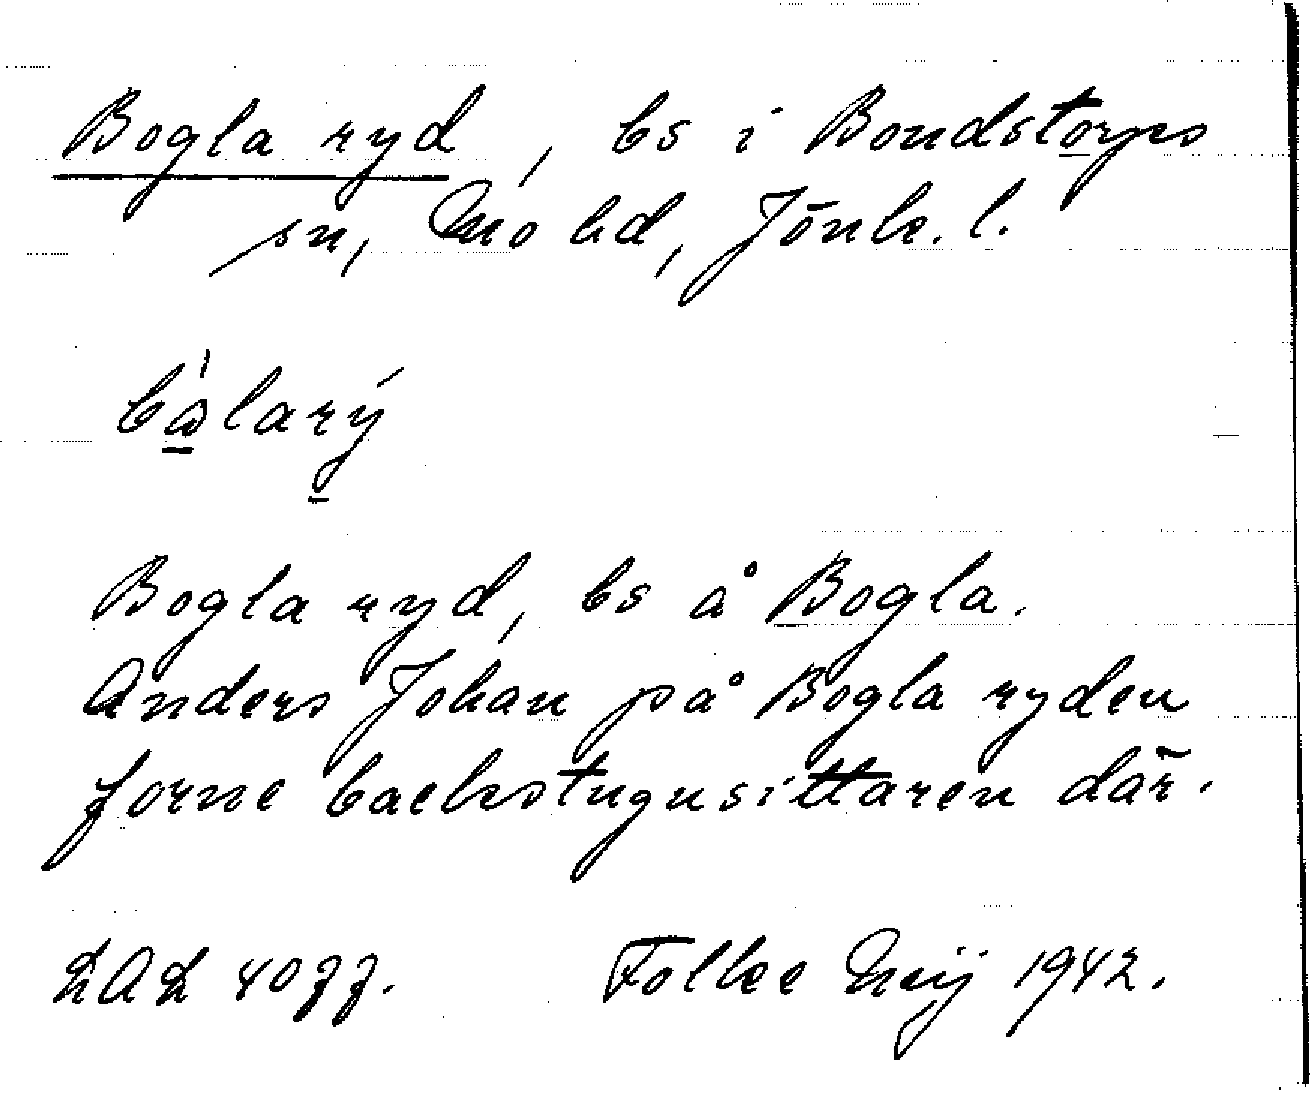 Bogla ryd, bs i Bondstorps
sn, Mo hd, Jönk. l.
bålarý
Bogla ryd, bs å Bogla.
Anders Johan på Bogla ryden
forne backstugusittaren där.
LAL 4077. Folke Meij 1942.